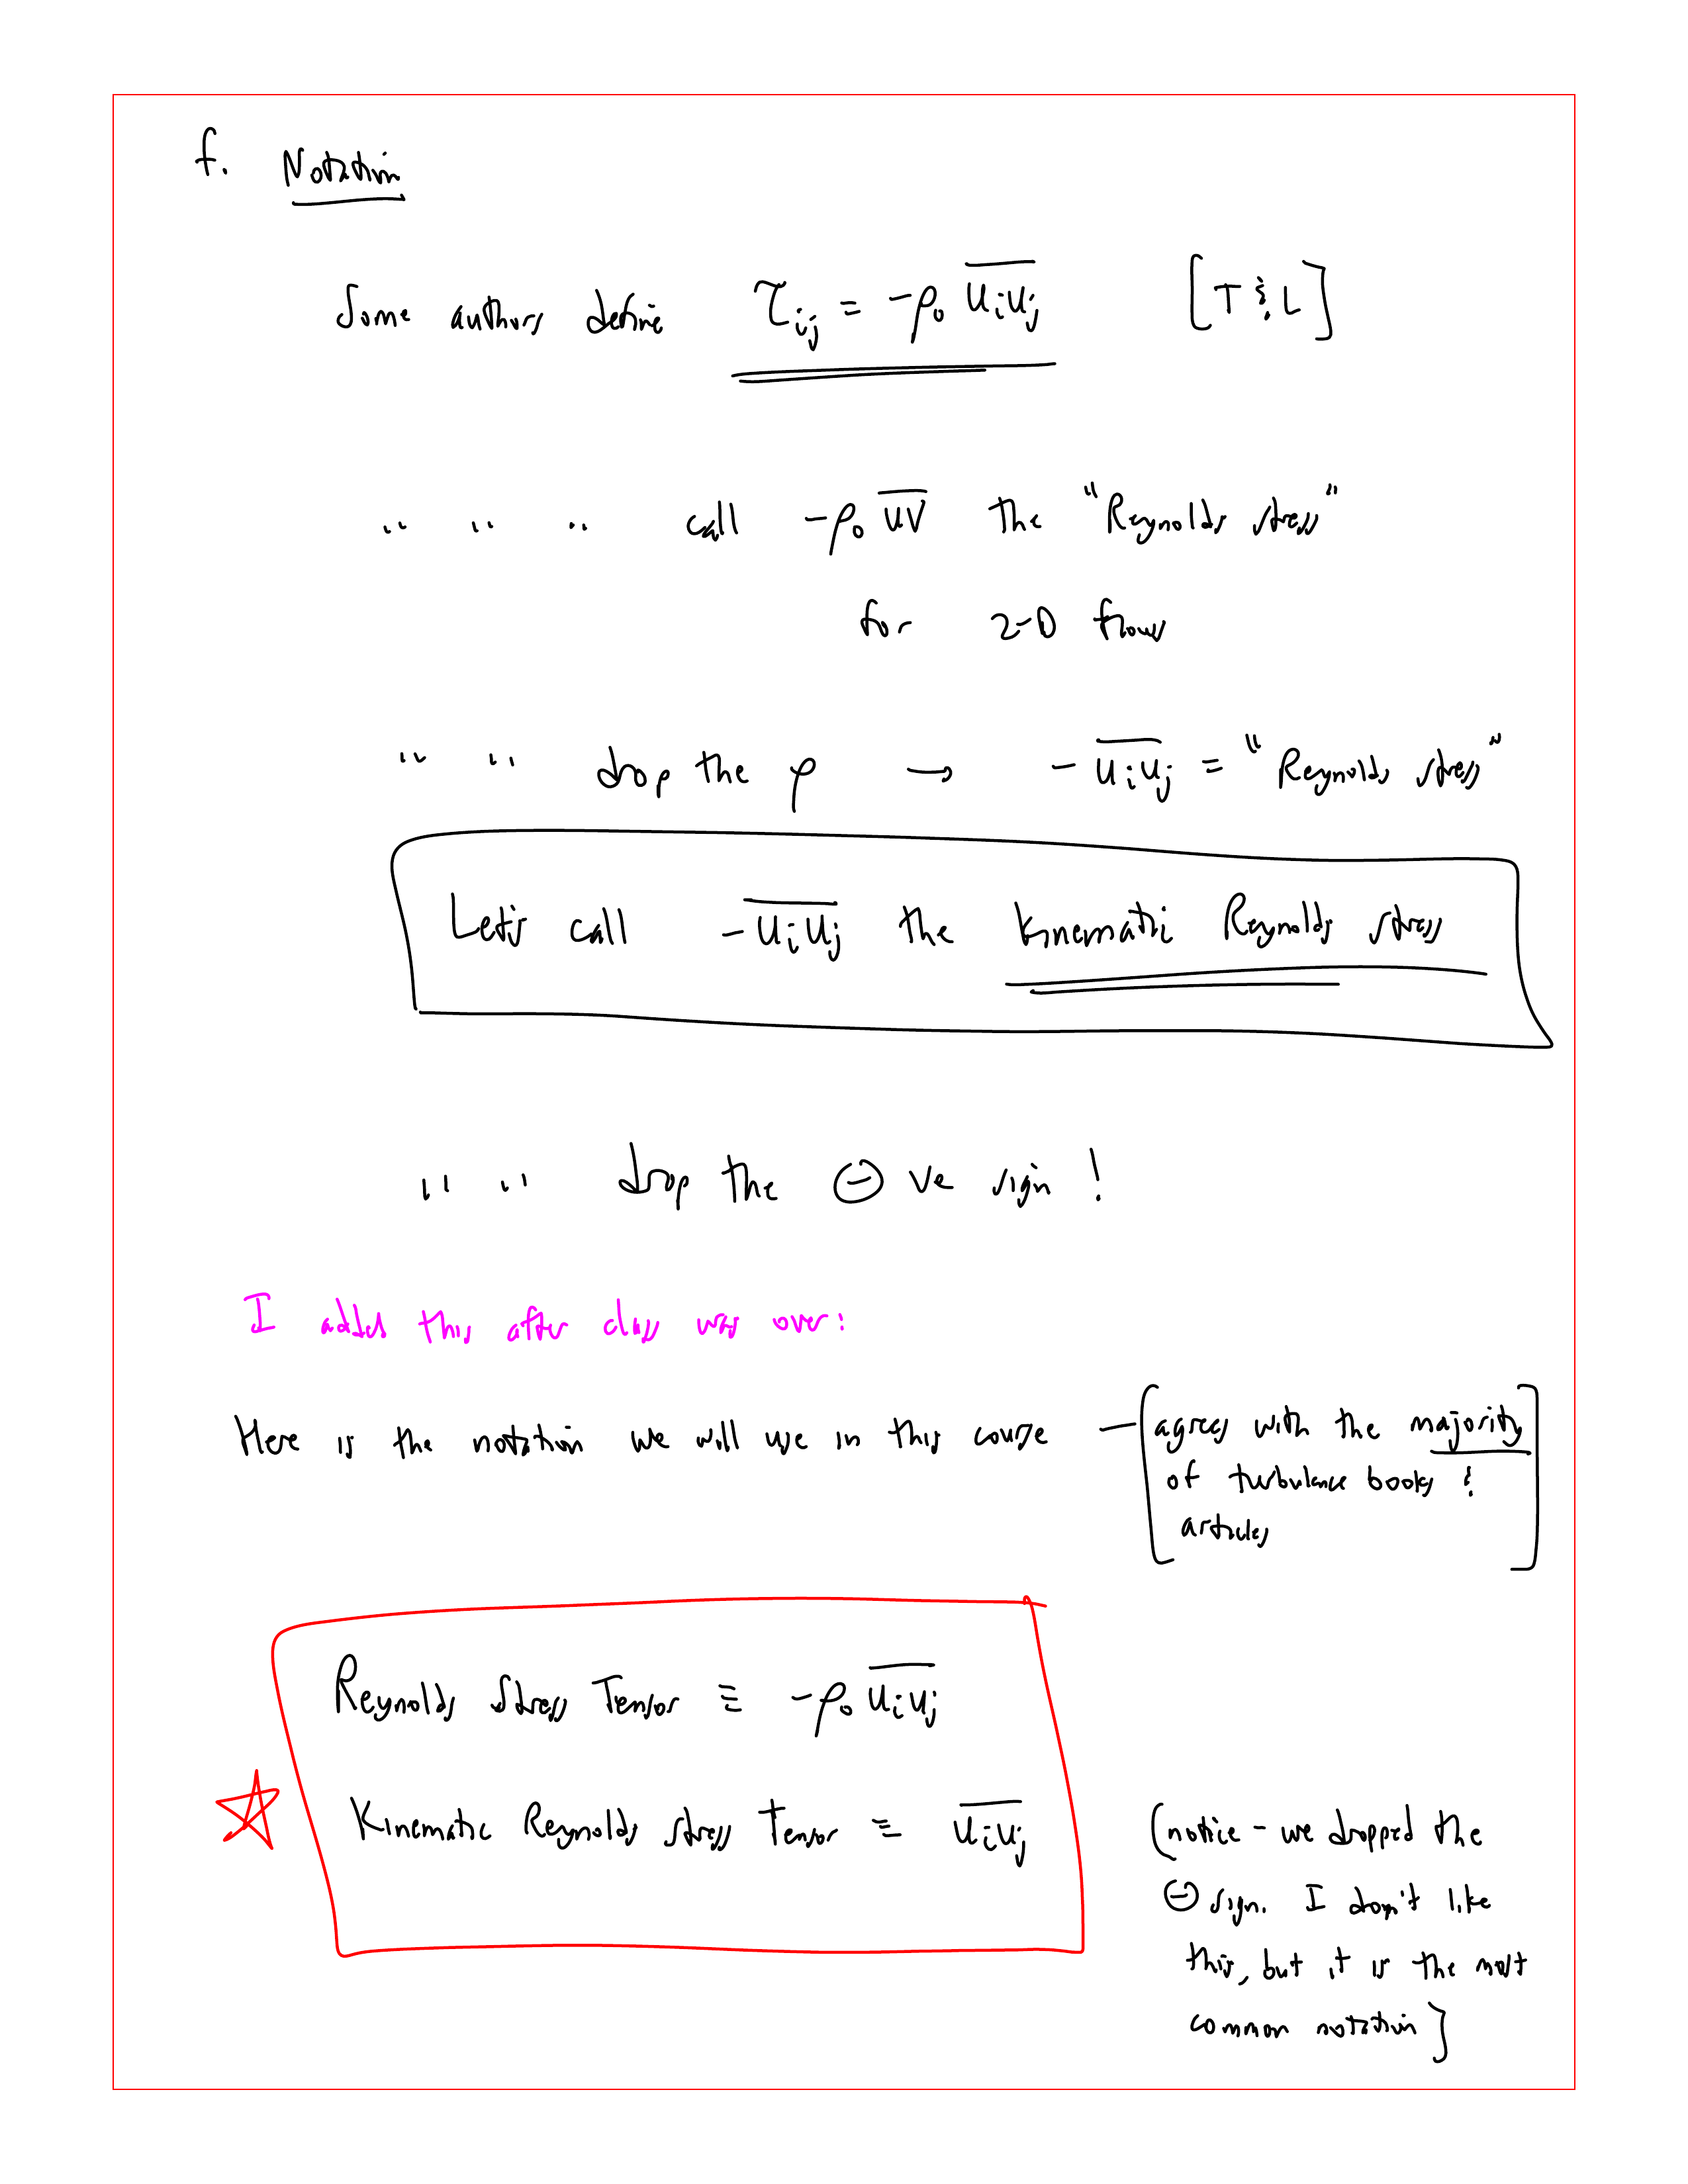 f. Notation
Some authors define τ_ij = -ρ₀ \overline{u_i u_j} [T & L]
" " " call -ρ₀ \overline{uv} the "Reynolds stress"
for 2-D flows
" " drop the ρ → -\overline{u_i u_j} = "Reynolds stress"
Let's call -\overline{u_i u_j} the kinematic Reynolds stress
" " drop the ⊖ ve sign !
I added this after class was over:
Here is the notation we will use in this course — [agrees with the majority
of turbulence books &
articles]
Reynolds Stress Tensor ≡ -ρ₀ \overline{u_i u_j}
Kinematic Reynolds stress Tensor ≡ \overline{u_i u_j}
(notice - we dropped the
⊖ sign. I don't like
this, but it is the most
common notation]